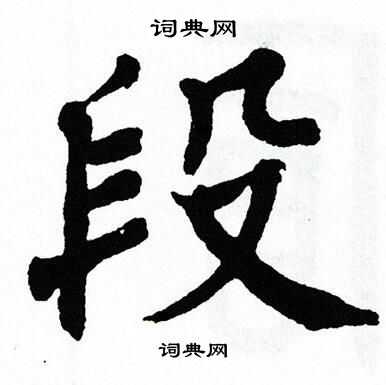 词典网
段
词典网